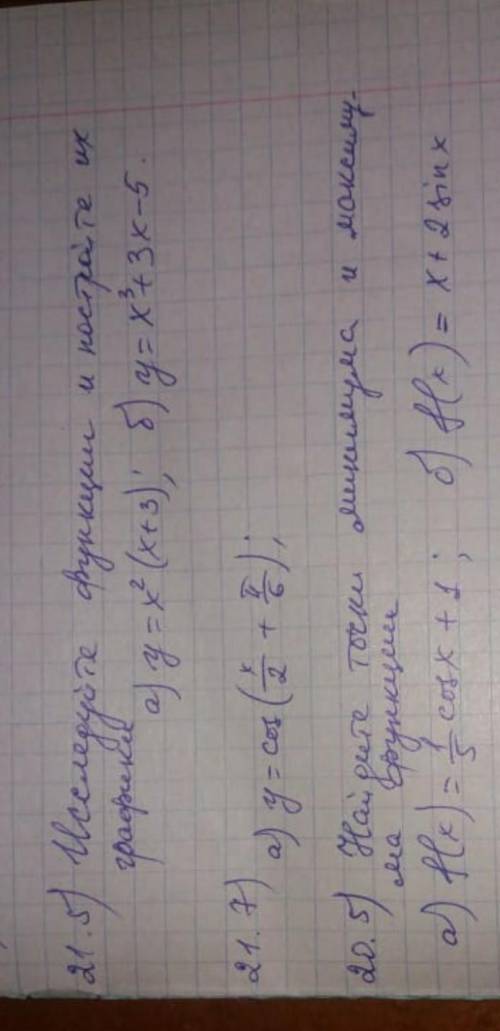 21.5) Исследуйте функции и постройте их
графики
а) y = x² (x+3); б) y = x³ + 3x - 5.
21.7)
а) y = cos (x/2 + π/6);
20.5) Найдите точки минимума и максиму-
ма функции
а) f(x) = 1/5 cos x + 1; б) f(x) = x + 2 sin x